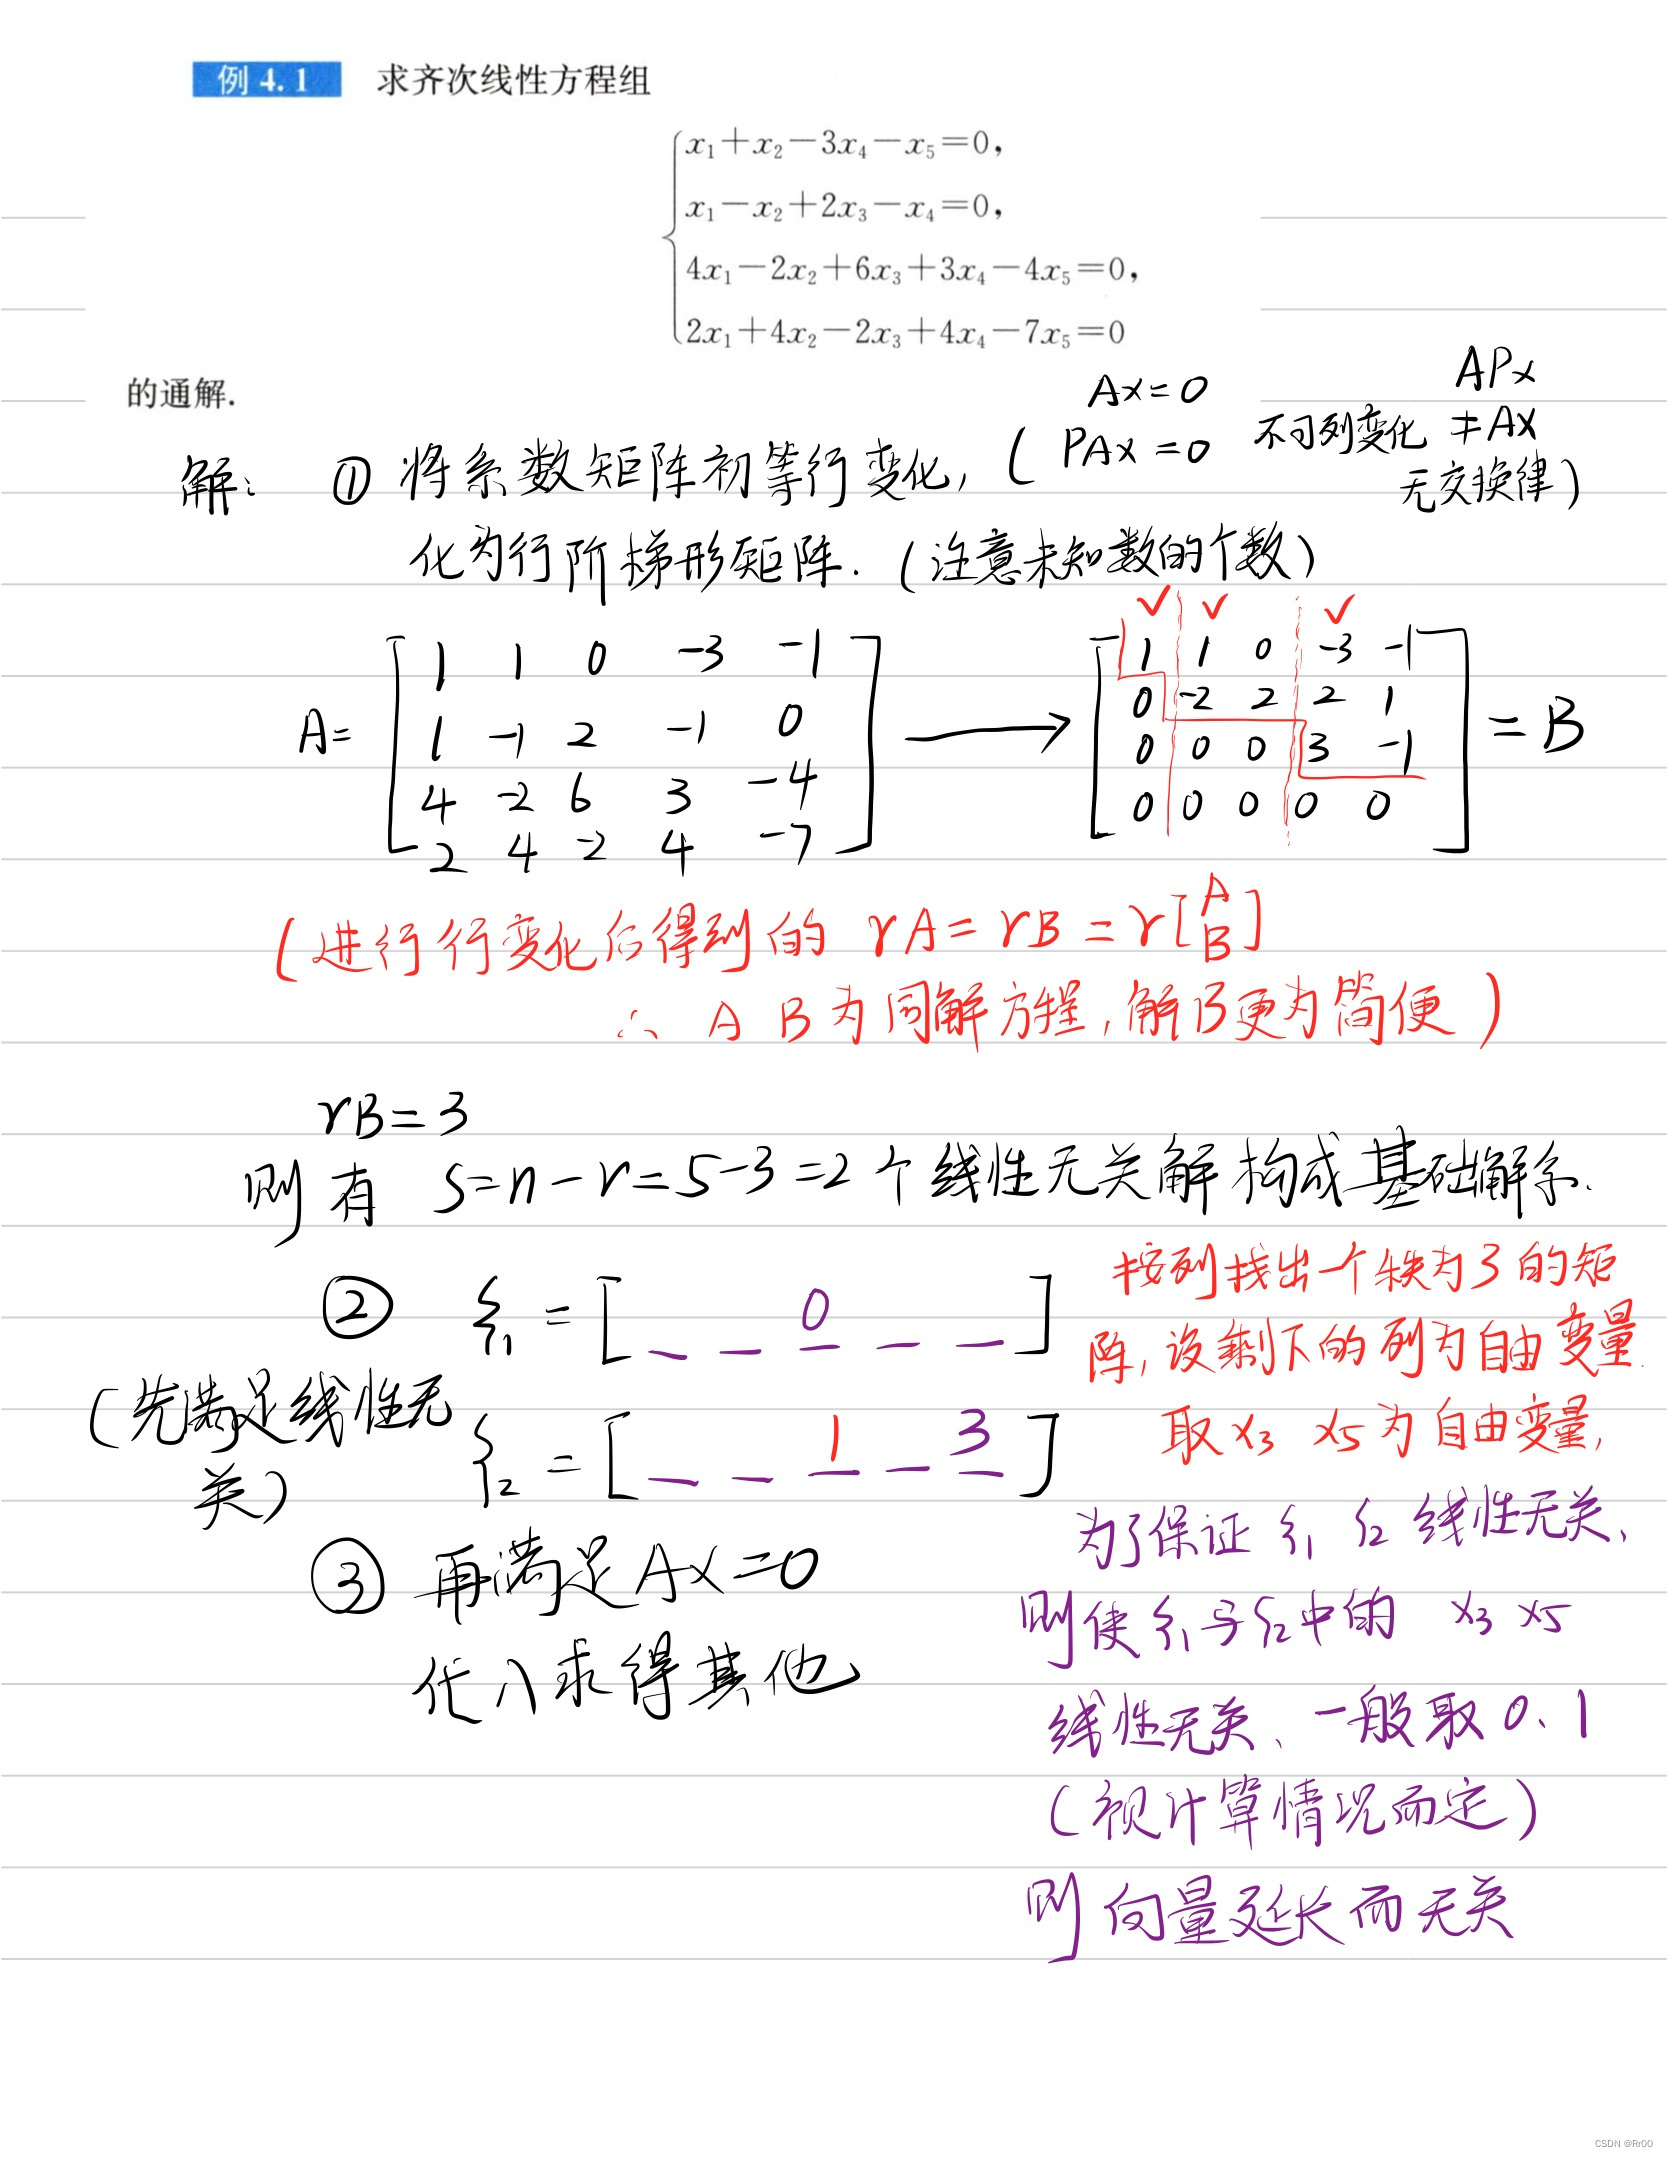 例 4.1 求齐次线性方程组
x₁+x₂-3x₄-x₅=0,
x₁-x₂+2x₃-x₄=0,
4x₁-2x₂+6x₃+3x₄-4x₅=0,
2x₁+4x₂-2x₃+4x₄-7x₅=0
的通解.
Ax=0 APx
解: ① 将系数矩阵初等行变化, ( PAx=0 不可列变化 ≠Ax
无交换律)
化为行阶梯形矩阵. (注意未知数的个数)
✓ ✓ ✓
1 1 0 -3 -1 1 1 0 -3 -1
A= 1 -1 2 -1 0 → 0 -2 2 2 1 = B
4 -2 6 3 -4 0 0 0 3 -1
2 4 -2 4 -7 0 0 0 0 0
(进行行变化后得到的 rA=rB=r[A B]
∴ A B为同解方程,解B更为简便)
rB=3
则有 S=n-r=5-3=2个线性无关解构成基础解系.
② ξ₁=[_ _ 0 _ _] 按列找出一个秩为3的矩
阵,设剩下的列为自由变量.
(先满足线性无
关) ξ₂=[_ _ 1 _ 3] 取x₃ x₅为自由变量,
为了保证ξ₁ ξ₂线性无关、
③ 再满足Ax=0
则使ξ₁与ξ₂中的 x₃ x₅
代入求得其他
线性无关、一般取0、1
(视计算情况而定)
则向量延长而无关
CSDN @Rr00